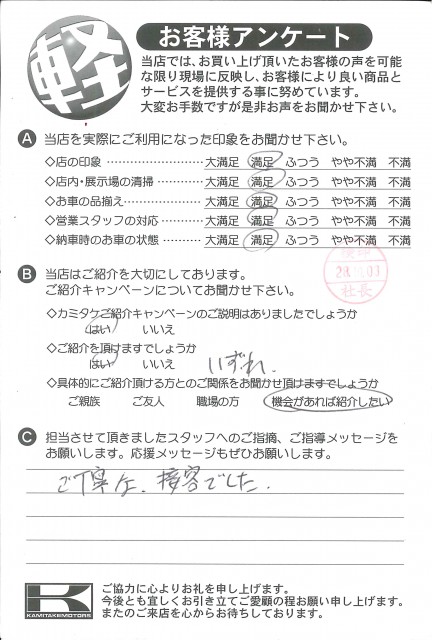 軽
お客様アンケート
当店では、お買い上げ頂いたお客様の声を可能
な限り現場に反映し、お客様により良い商品と
サービスを提供する事に努めています。
大変お手数ですが是非お声をお聞かせ下さい。
A 当店を実際にご利用になった印象をお聞かせ下さい。
◇店の印象 ………………… 大満足 満足 ふつう やや不満 不満
◇店内・展示場の清掃 ……… 大満足 満足 ふつう やや不満 不満
◇お車の品揃え ……………… 大満足 満足 ふつう やや不満 不満
◇営業スタッフの対応 ……… 大満足 満足 ふつう やや不満 不満
◇納車時のお車の状態 ……… 大満足 満足 ふつう やや不満 不満
社長
B 当店はご紹介を大切にしております。
ご紹介キャンペーンについてお聞かせ下さい。
◇カミタケご紹介キャンペーンのご説明はありましたでしょうか
はい いいえ
◇ご紹介を頂けますでしょうか
はい いいえ いずれ.
◇具体的にご紹介頂ける方とのご関係をお聞かせ頂けますでしょうか
ご親族 ご友人 職場の方 機会があれば紹介したい
C 担当させて頂きましたスタッフへのご指摘、ご指導メッセージを
お願いします。応援メッセージもぜひお願いします。
ご丁寧な、接客でした.
K
KAMITAKEMOTORS
ご協力に心よりお礼を申し上げます。
今後とも宜しくお引き立てご愛顧の程お願い申し上げます。
またのご来店を心からお待ちしております。